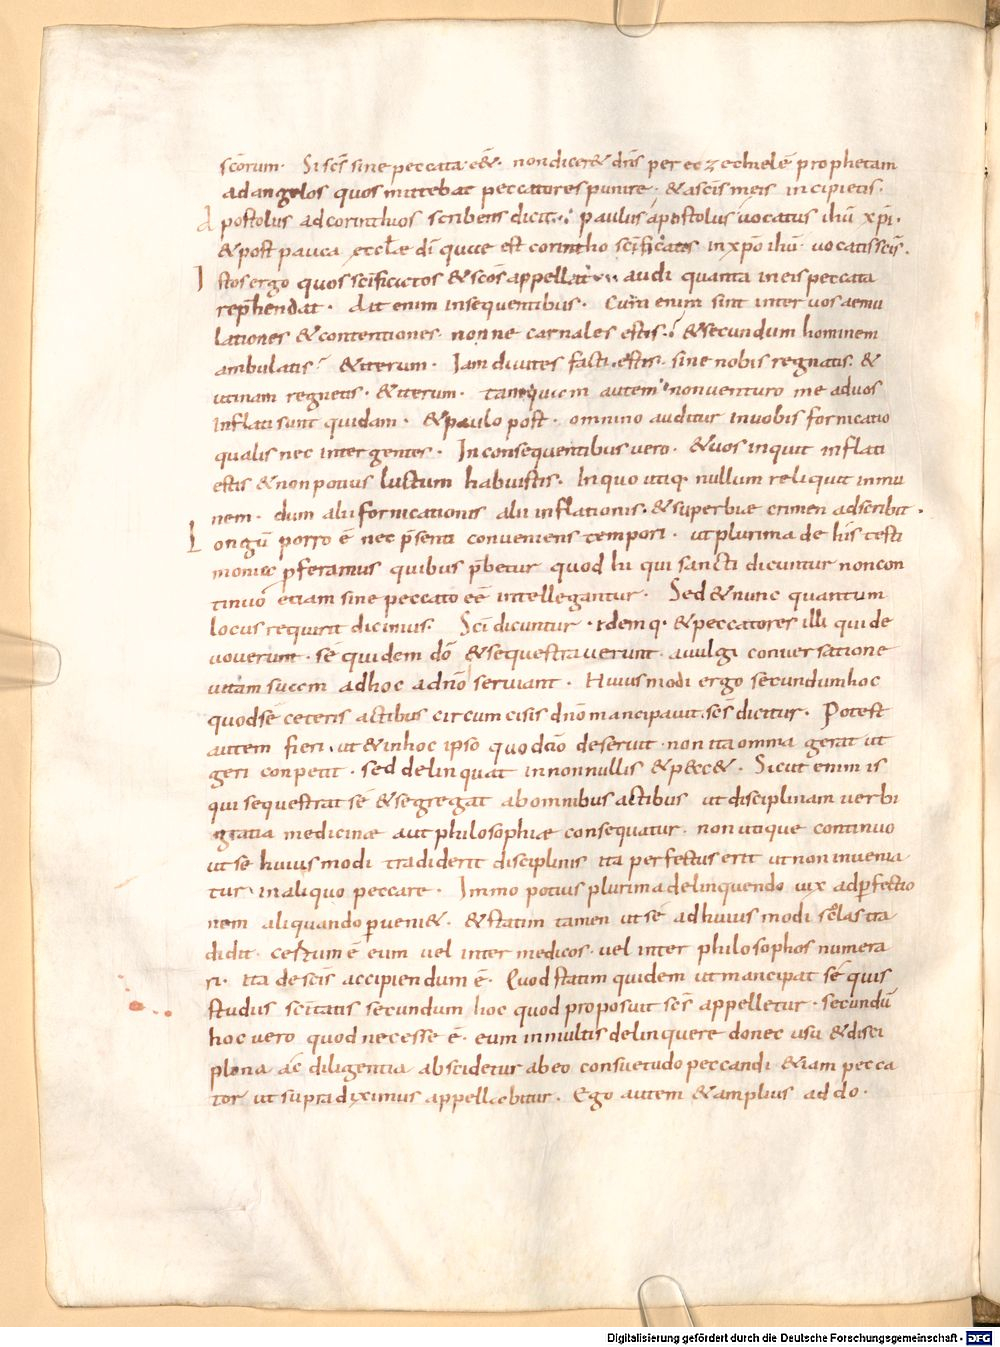 scōrum. Si scs̄ sine peccata ēē&. non dicer& dn̄s per ezechielē prophetam
ad angelos quos mittebat peccatores punire. & a scīs meis incipietis.
Apostolus ad corinthios scribens dicit. paulus apostolus uocatus ihū xp̄i.
& post pauca ecclæ dī quæ est corintho scīficatis in xp̄o ihū uocatis scīs.
Istos ergo quos scīficatos & scōs appellat audi quanta in eis peccata
rep̄hendat. Ait enim in sequentibus. Cum enim sint inter uos aemu
lationes & contentiones nonne carnales estis? & secundum hominem
ambulatis? & iterum. Iam diuites facti estis. sine nobis regnatis. &
utinam regnetis. & iterum. tamquam autem non uenturo me ad uos
inflati sunt quidam. & paulo post. omnino auditur in uobis fornicatio
qualis nec inter gentes. In consequentibus uero. & uos inquit inflati
estis & non potius luctum habuistis. In quo utiq. nullum reliquit inmu
nem. dum alii fornicationis alii inflationis. & superbiæ crimen adscribit.
Longū porro ē nec p̄senti conueniens tempori. ut plurima de his testi
monia p̄feramus quibus p̄betur quod hi qui sancti dicuntur non con
tinuo etiam sine peccato eē intellegantur. Sed & nunc quantum
locus requirit dicimus. Scī dicuntur. idemq. & peccatores illi qui de
uouerunt. sē quidem dō & sequestrauerunt. a uulgi conuersatione
uitam suam ad hoc ad nō seruiant. Huiusmodi ergo secundum hoc
quod sē ceteris actibus circumcisis dnō mancipauit. scs̄ dicitur. Potest
autem fieri. ut & in hoc ipso quod dō deseruit. non ita omnia gerat ut
geri conpetit. sed delinquat in nonnullis & pecc&. Sicut enim is
qui sequestrat sē & segregat ab omnibus actibus ut disciplinam uerbi
gratia medicinæ aut philosophiæ consequatur. non utique continuo
ut se huiusmodi tradiderit disciplinis ita perfectus erit ut non inuenia
tur in aliquo peccare. Immo potius plurima delinquendo uix ad p̄fectio
nem aliquando p̄ueni&. & statim tamen ut sē ad huiusmodi scolas tra
didit. certum ē eum uel inter medicos. uel inter philosophos numera
ri. ita de scīs accipiendum ē. Quod statim quidem ut mancipat sē quis
studiis scītatis secundum hoc quod proposuit scs̄ appelletur. secundū
hoc uero quod necesse ē. eum in multis delinquere donec usu & disci
plina ac diligentia abscidetur ab eo consuetudo peccandi & iam pecca
tor ut supra diximus appellabitur. Ego autem & amplius addo.
Digitalisierung gefördert durch die Deutsche Forschungsgemeinschaft - DFG